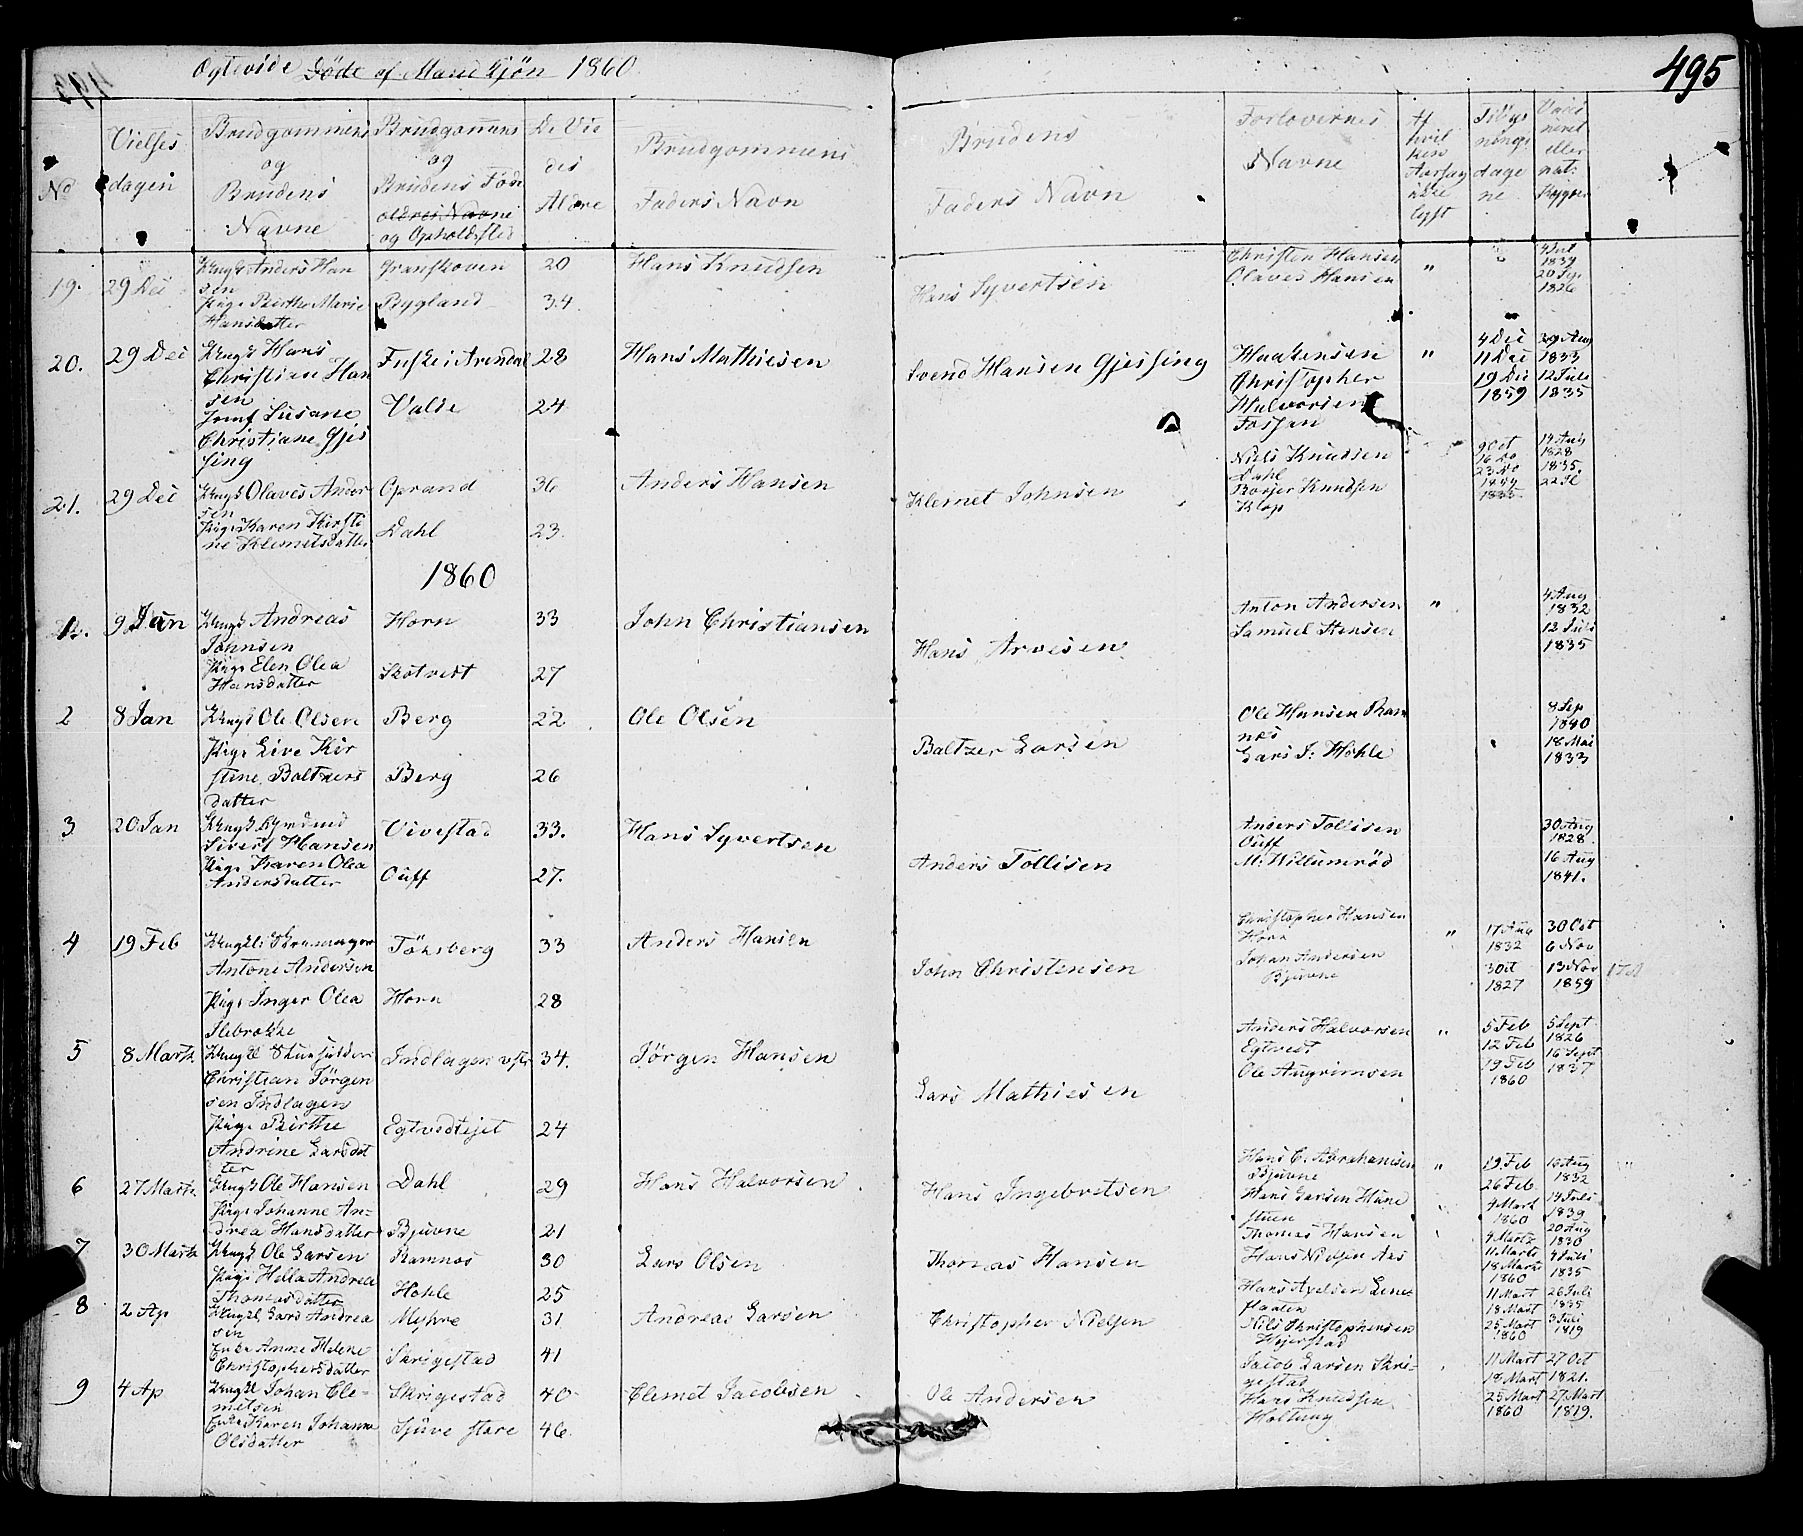 Ogteviede Döde af Mandkjön 1860
495
No
Vielses
dagen
Brudgommens
og
Brudens
Navne
Brudgomens
og
Brudens Föde
oldres Navne
og Opholdssted
De Vie
des
Aldre
Brudgommens
Faders Navn
Brudens
Faders Navn
Forlovernes
Navne
Af
hvil
ken
Aarsag
ikke
lyst
Tilys
nings
dage
ne
Vacci
neret
eller
nat:
Kopper
19. 29 Dec
Ungk Anders Han
sen
Pige Berthe Marie
Hansdatter
Granskoven
Bygland
20
34
Hans Knudsen
Hans Syvertsen
Christen Hansen
Olaves Hansen
"
1839
1826
20. 29 Dec
Ungk Hans
Christian Han
sen
Jomf Susane
Christiane Gjes
sing
Fuske i Arendal
Valde
28
24
Hans Mathiesen
Svend Hansen Gjessing
Haakensen
Christopher
Halvorsen
Fossan
"
4 Dec
11 Dec
19 Dec
1859
29 Aug
1833
12 Juli
1835
21. 29 Dec
Ungk Olaves Ander
sen
Pige Karen Kirsti
ne Klemetsdatter
Oprand
Dahl
36
23.
Anders Hansen
Klemet Johnsen
Niels Knudsen
Dahl
Borjer Knudsen
Klop
9 Oct
16 Do
23 Do
14 Aug
1828
1835.
1860
1. 9 Jan
Ungk Andreas
Johnsen
Pige Elen Olea
Hansdatter
Horn
Skotvedt
33
27
John Christiansen
Hans Arvesen
Anton Andersen
Samuel Stensen
"
4 Aug
1832
12 Juli
1835
2 8 Jan
Ungk Ole Olsen
Pige Live Kir
stine Baltzers
datter
Berg
Berg
22
26
Ole Olsen
Baltzer Larsen
Ole Hansen Ram
nes
Lars J: Hohle
8 Sep
1840
18 Mai
1833
3 20 Jan
Sivert Hansen
Pige Karen Olea
Andersdatter
Vivestad
Ouff
33.
27.
Hans Syvertsen
Anders Tollisen
Anders Tollisen
Ouff
M. Hillumröd
30 Aug
1828.
16 Aug
1841.
4 19 Feb
Antone Andersen
Pige Inger Olea
Slebrokke
Tönsberg
Horn
33
28
Anders Hansen
John Christensen
Christopher Hansen
Horn
Johan Andersen
Bjuvne
"
17 Aug
1832
3 Oct
1827
30 Oct
6 Nov
13 Nov
1859
5 8 Marts
Christian Jörgen
sen Indlagen
Pige Berthe
Andrine Larsdat
ter
Indlagen
Egtvedtejet
34.
24
Jörgen Hansen
Lars Mathiesen
Anders Halvorsen
Egtvedt
Ole Angrimsen
"
5 Feb
12 Feb
19 Feb
1860
5 Sept
1826
16 Sept
1837
6 27 Marts
Ungk Ole Hansen
Pige Johanne An-
drea Hansdatter
Dahl
Bjuvne
29
21
Hans Halvorsen
Hans Ingebretsen
Hans C. Abrahamsen
Bjuvne
Hans Larsen Hane
stuen
"
19 Feb
26 Feb
4 Mart
1860
1832
14 Juli
1839
7 30 Marts
Ungk Ole Larsen
Pige Hella Andrea
Thomasdatter
Ramnes
Hohle
30
25
Lars Olsen
Thomas Hansen
Thomas Hansen
Hans Nielsen Aas
4 Marts
11 Marts
18 Marts
1860
20 Aug
1830
4 Juli
1835
8 2 Ap
Ungk Lars Andrea
sen
Enke Anne Helene
Christophersdatter
Myhre
Skrigestad
31
41
Andreas Larsen
Christopher Nielsen
Nils Christophersen
Hojerstad
11 Mart
18 Mart
25 Mart
1860
26 Juli
1835
3 Juli
1819
9 4 Ap
Ungk Johan Cle-
metsen
Enke Karen Johanne
Olsdatter
Skrigestad
40
46
Clemet Jacobsen
Ole Andersen
Jacob Larsen Skri-
gestad
Hans Knudsen
Holtung
11 Mart
18 Mart
25 Mart
1860
27 Oct
1821.
27 Mart
1819.